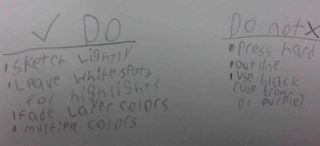 ✓ DO
• Sketch Lightly
• Leave white spots
for highlights
• fade Layer colors
• multiple colors
Do not X
• Press hard
• outline
• use black
(use brown
or purple)